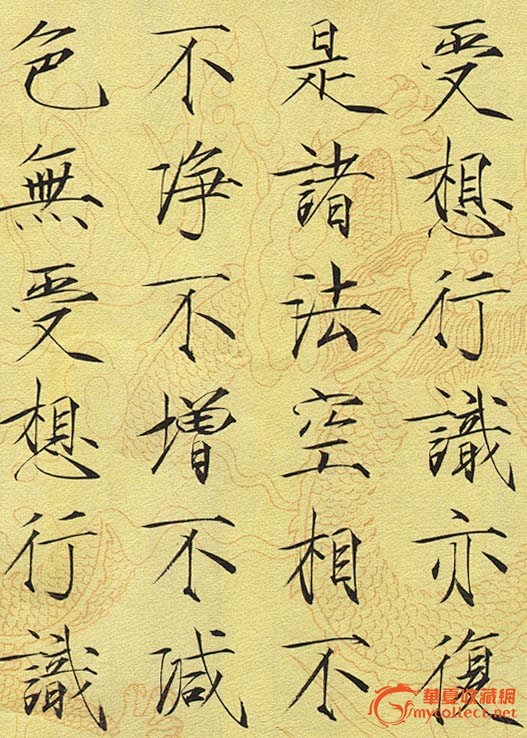 受想行識亦復
是諸法空相不
不淨不增不減
色無受想行識
華夏收藏網
mycollect.net